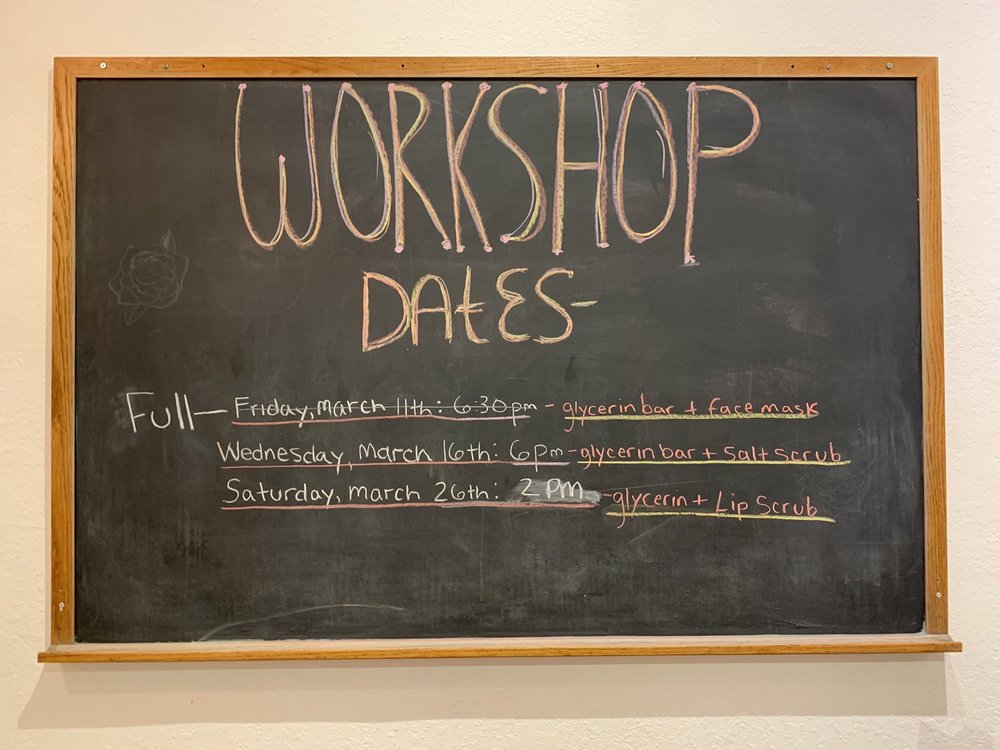 WORKSHOP
DAtES-
Full- Friday, march 11th: 6:30pm - glycerin bar + face mask
Wednesday, March 16th: 6pm - glycerin bar + Salt scrub
Saturday, march 26th: 2 PM - glycerin + Lip Scrub